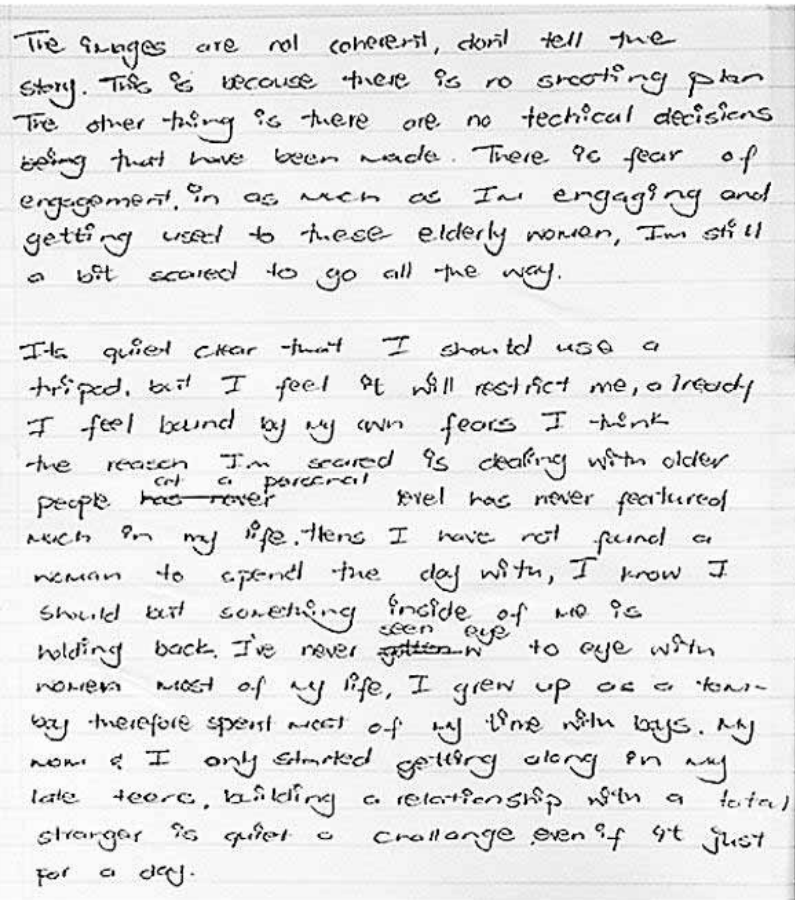 The images are not coherent, don't tell the
story. This is because there is no shooting plan
The other thing is there are no techical decisions
being that have been made. There is fear of
engagement, in as much as I'm engaging and
getting used to these elderly women, I'm still
a bit scared to go all the way.
Its quiet clear that I should use a
tripod, but I feel it will restrict me, already
I feel bound by my own fears I think
the reason I'm scared is dealing with older
people has never on a personal level has never featured
much in my life. Hens I have not found a
woman to spend the day with, I know I
should but something inside of me is
holding back. I've never gotten seen eye to eye with
women most of my life, I grew up as a tom-
boy therefore spent most of my time with boys. My
mom & I only started getting along in my
late teens, building a relationship with a total
stranger is quiet a challange even if it just
for a day.